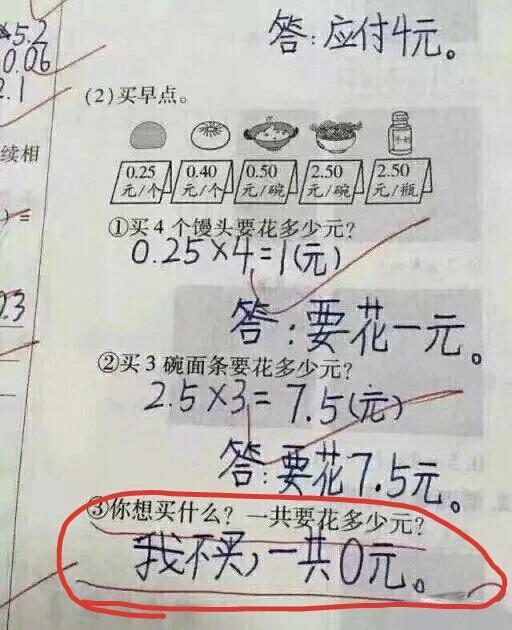 ×5.2
0.06
2.1
续相
0.3
答:应付4元。
(2)买早点。
0.25 0.40 0.50 2.50 2.50
元/个 元/个 元/碗 元/碗 元/瓶
①买4个馒头要花多少元?
0.25×4=1(元)
答:要花一元。
②买3碗面条要花多少元?
2.5×3=7.5(元)
答:要花7.5元。
③你想买什么?一共要花多少元?
我不买,一共0元。